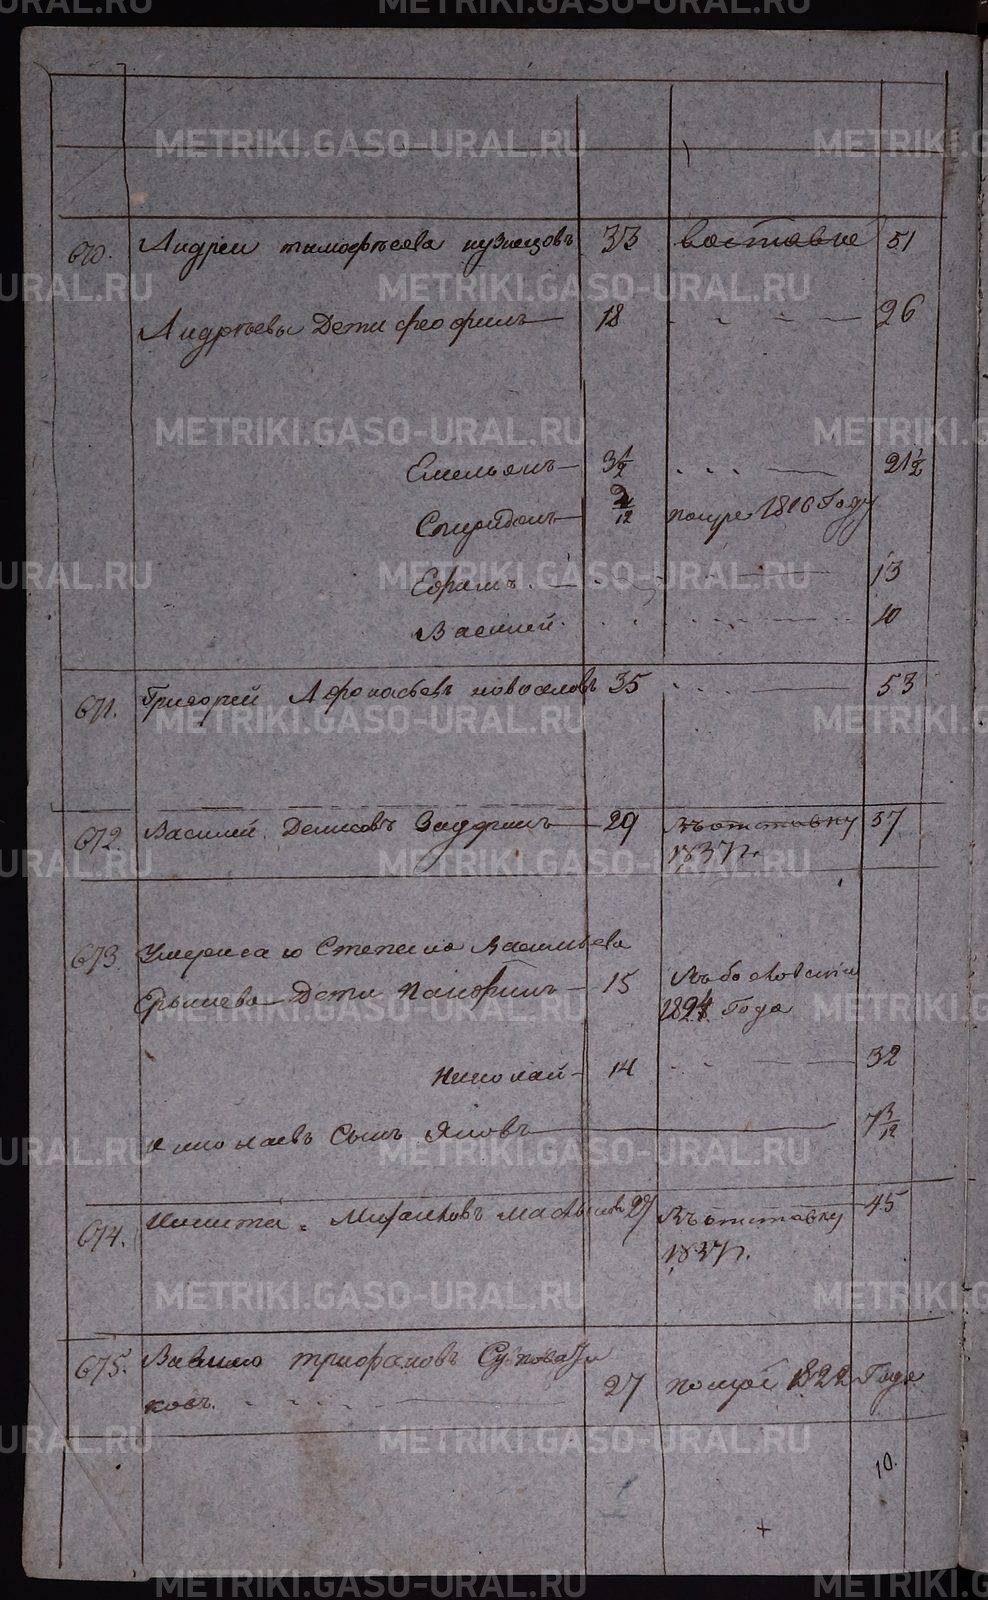 METRIKI.GASO-URAL.RU
670. Андреи тимофеева кузнецовъ 33 воставке 51
Андреевы Дети феофилъ 18 26
Емельянъ 3 1/2 21 1/2
Спиридонъ 2/12 помре 1816 Году
Ефрамъ. 13
Василей. 10
671. Григорей Афонасьевъ новоселовъ 35 53
672. Василей Денисовъ Задринъ 29 Въ отставку 37
1837 г.
673. Умершаго Степана Васильева
Дети Панфилъ 15
1824 Года
Николай 14 32
николаевъ Сынъ Яковъ 7 3/12
674. Никита 27 Въ отставку 45
1837 г.
675. Вавило трифановъ
ковъ. 27 помре 1822 Года
10.